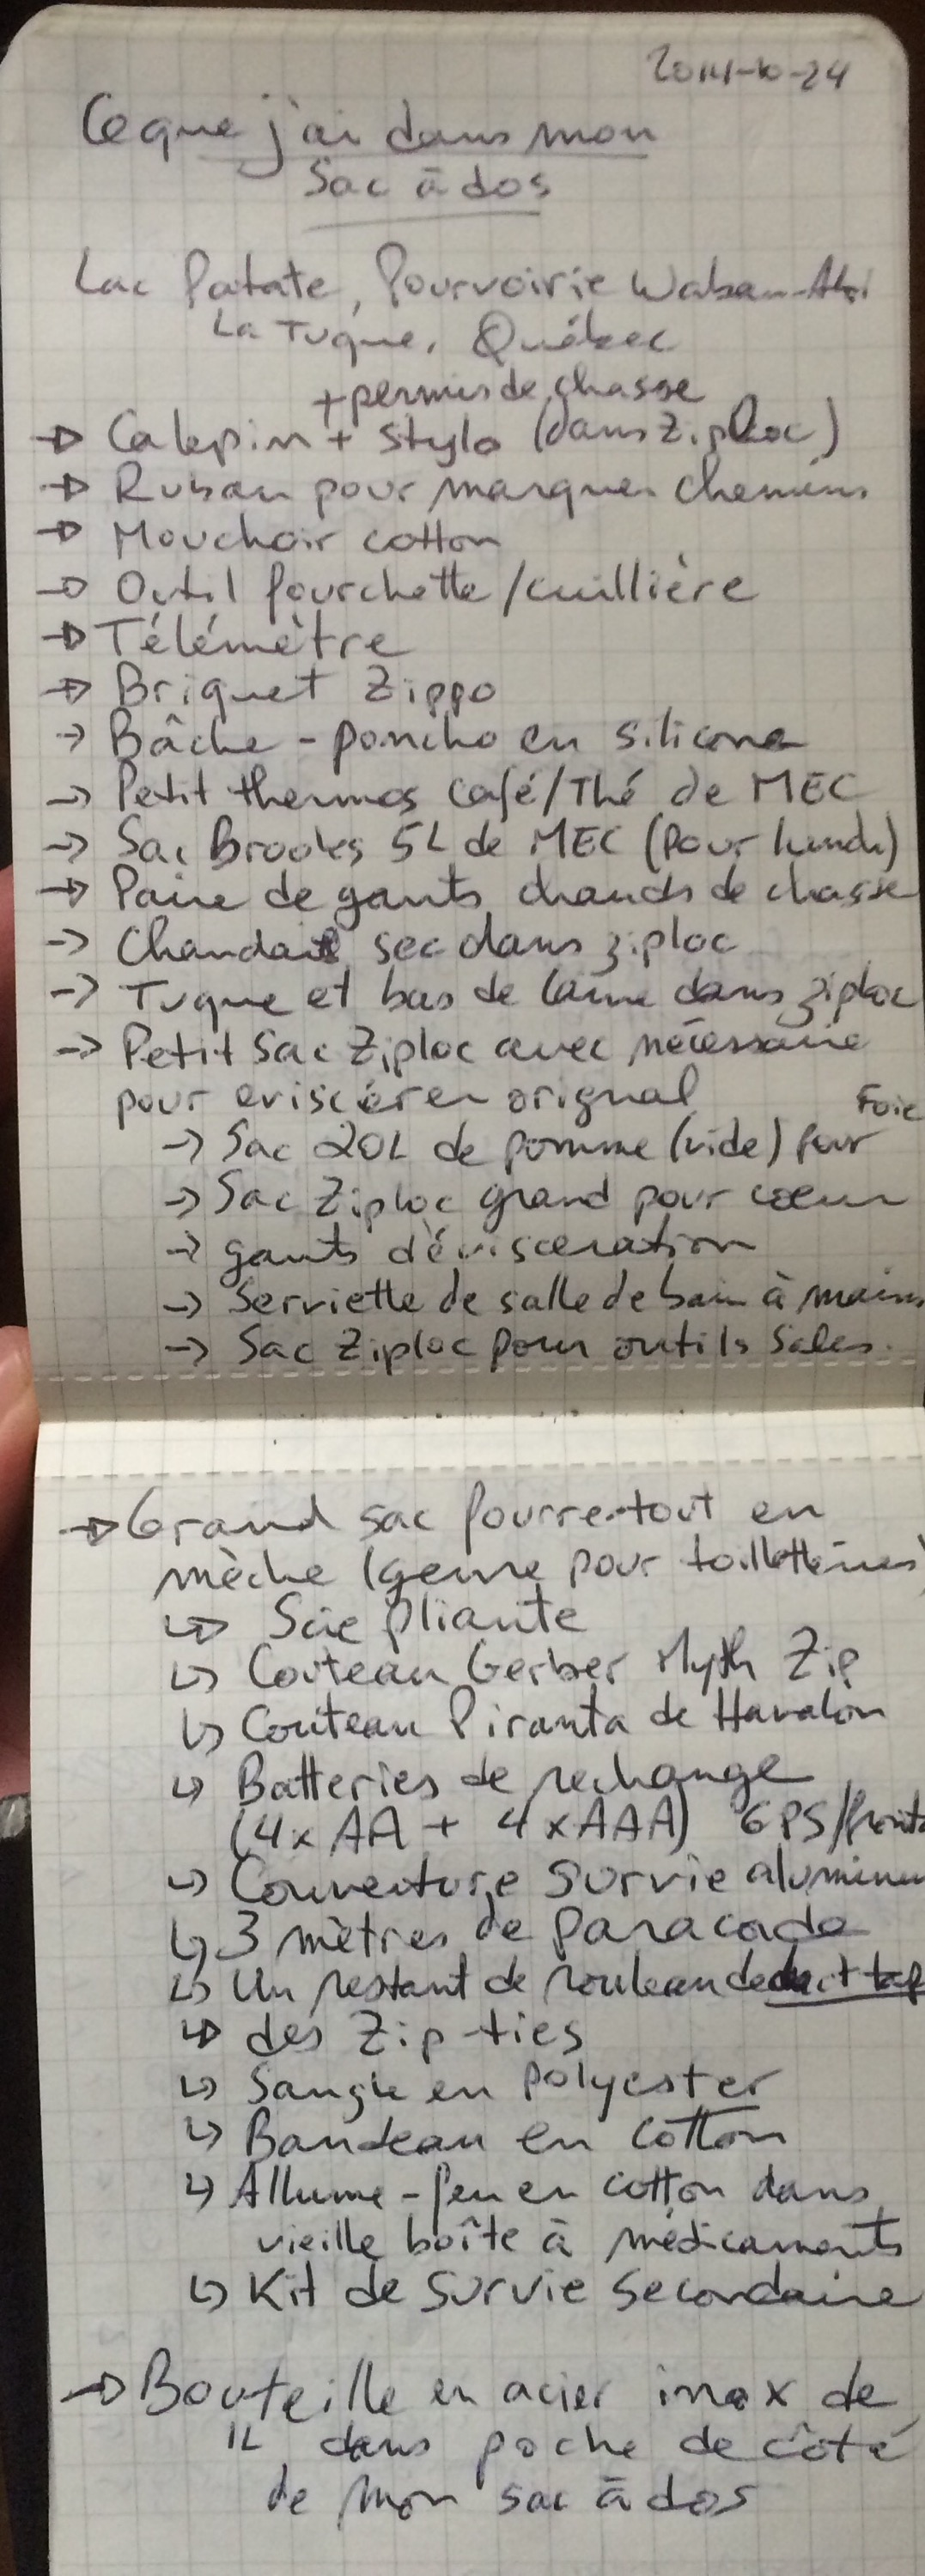 2014-10-24
Ce que j'ai dans mon
sac à dos
Lac Patate, Pourvoirie Waban-Aki
La Tuque, Québec
+ permis de chasse
→ Calepin + stylo (dans Ziploc)
→ Ruban pour marquer chemins
→ Mouchoir cotton
→ Outil fourchette/cuillière
→ Télémètre
→ Briquet Zippo
→ Bâche-poncho en silicone
→ Petit thermos café/Thé de MEC
→ Sac Brooks 5L de MEC (pour lunch)
→ Paire de gants chauds de chasse
→ Chandail sec dans ziploc
→ Tuque et bas de laine dans ziploc
→ Petit Sac Ziploc avec nécessaire
pour eviscérer orignal
→ Sac 20L de pomme (vide) pour Foie
→ Sac Ziploc grand pour coeur
→ gants d'évisceration
→ Serviette de salle de bain à mains
→ Sac Ziploc pour outils Sales.
→ Grand sac fourre-tout en
mèche (genre pour toilletteries)
↳ Scie pliante
↳ Couteau Gerber Myth Zip
↳ Couteau Piranta de Havalon
↳ Batteries de rechange
(4xAA + 4xAAA) GPS/
↳ Couverture survie
↳ 3 mètres de paracorde
↳ Un restant de rouleau de duct tape
↳ des Zip-ties
↳ Sangle en polyester
↳ Bandeau en cotton
↳ Allume-feu en cotton dans
vieille boîte à médicaments
↳ Kit de survie secondaire
→ Bouteille en acier inox de
1L dans poche de côté
de mon sac à dos